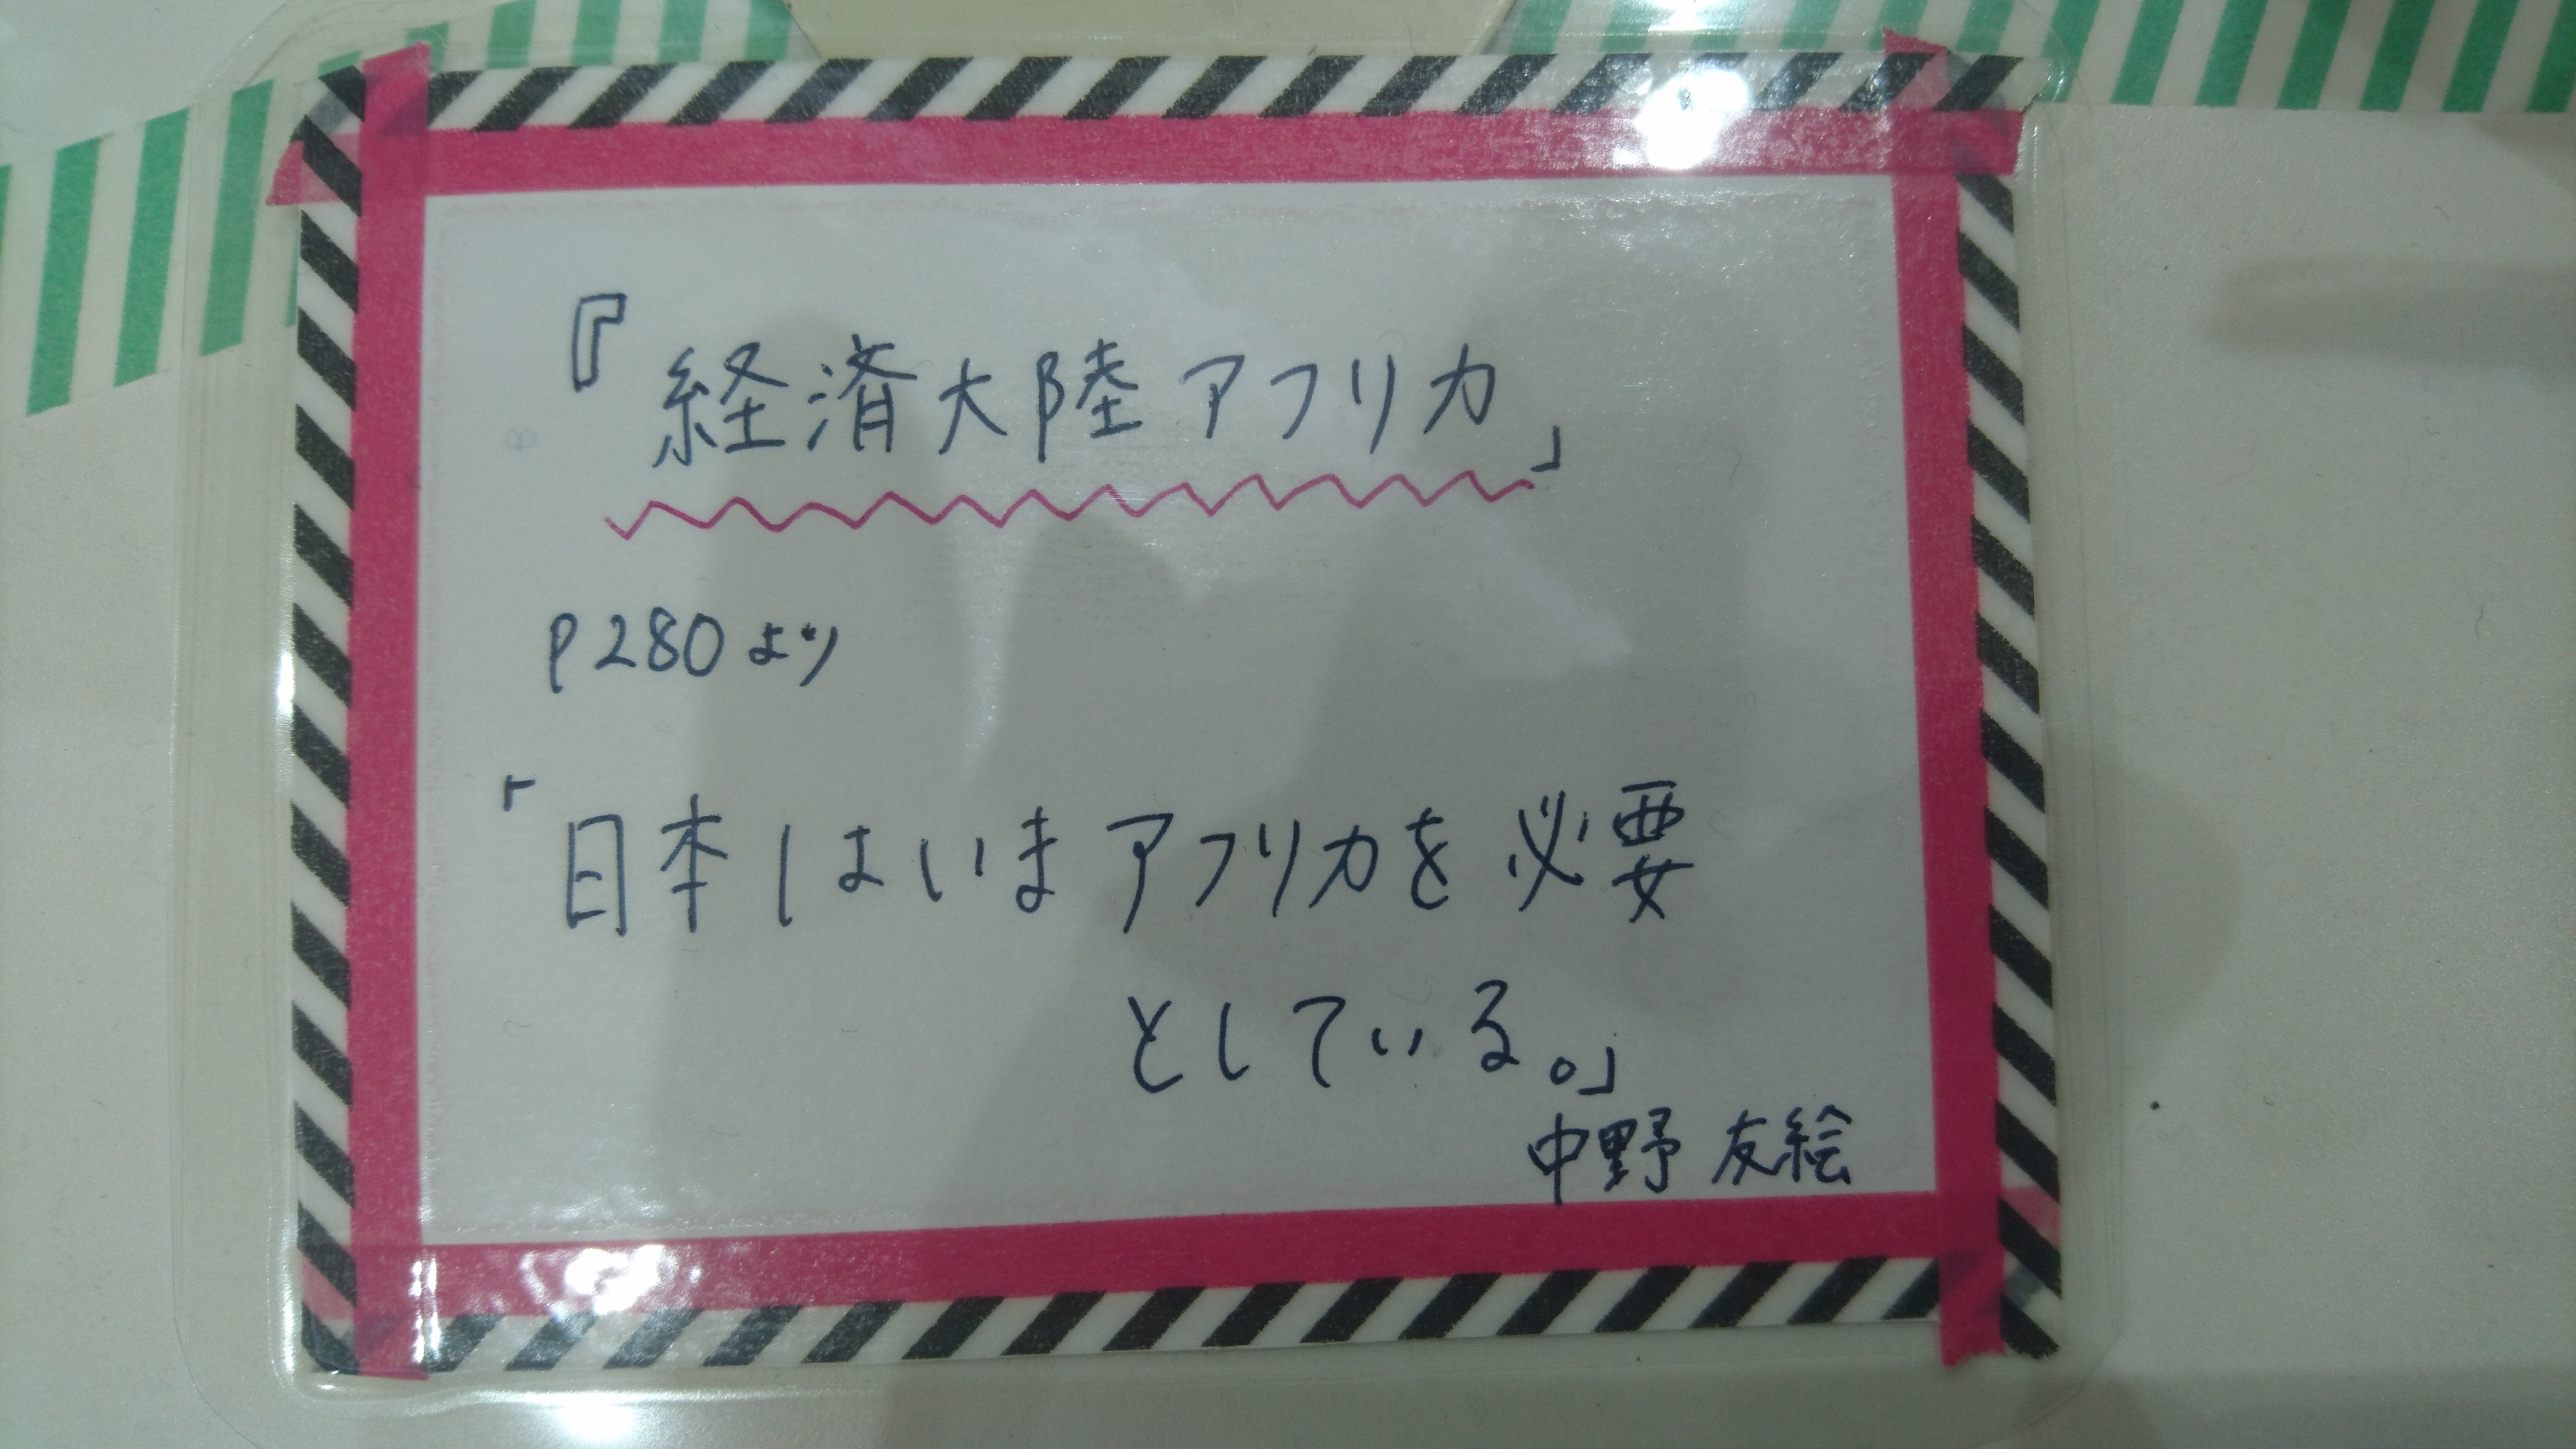 『経済大陸アフリカ」
P280より
「日本はいまアフリカを必要
としている。」
中野 友絵